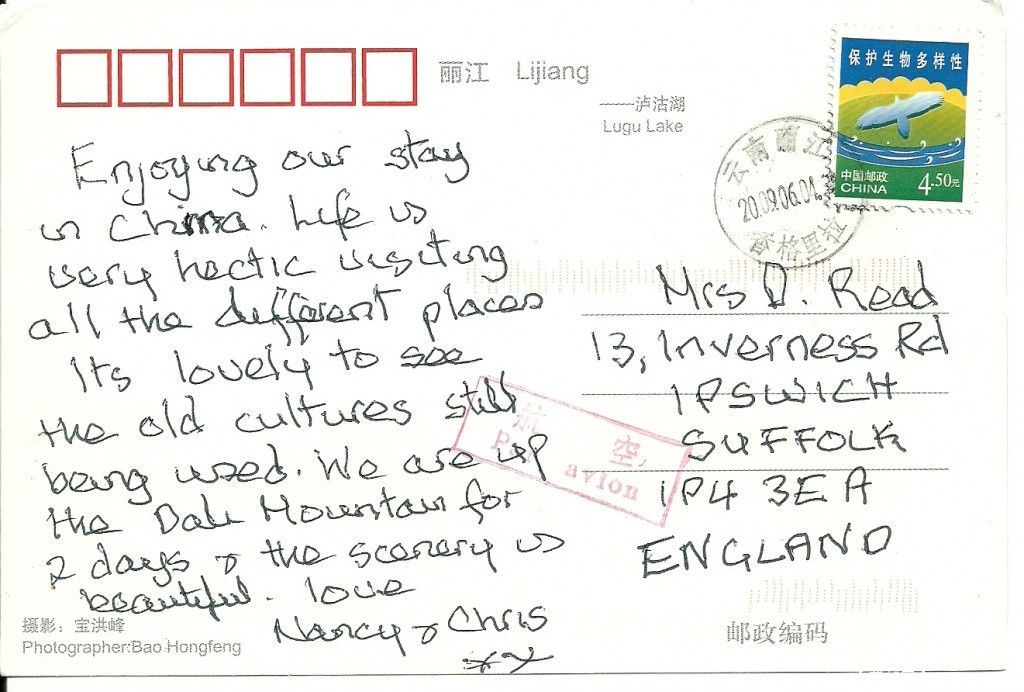 丽江 Lijiang
——泸沽湖
Lugu Lake
保护生物多样性
中国邮政
CHINA
4.50元
云南丽江
20.09.06.01
香格里拉
Enjoying our stay
in China. Life is
very hectic visiting
all the different places
Its lovely to see
the old cultures still
being used. We are up
the Dali Mountain for
2 days & the scenery is
beautiful. love
Nancy & Chris
xx
航空
Par avion
Mrs D. Read
13, Inverness Rd
IPSWICH
SUFFOLK
IP4 3EA
ENGLAND
摄影：宝洪峰
Photographer:Bao Hongfeng
邮政编码